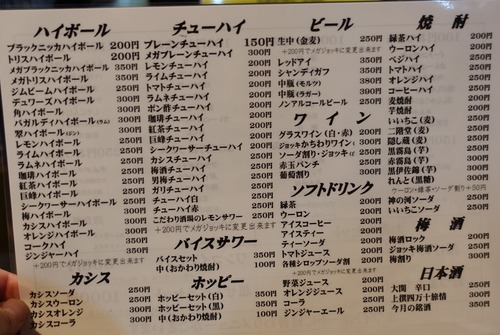 ハイボール
ブラックニッカハイボール 200円
トリスハイボール 200円
メガブラックニッカハイボール 350円
メガトリスハイボール 350円
ジムビームハイボール 250円
デュワーズハイボール 300円
角ハイボール 300円
バカルディハイボール(ラム) 300円
翠ハイボール(ジン) 300円
レモンハイボール 250円
ライムハイボール 250円
ラムネハイボール 250円
珈琲ハイボール 300円
紅茶ハイボール 300円
巨峰ハイボール 300円
シークヮーサーハイボール 300円
梅ハイボール 300円
カシスハイボール 300円
オレンジハイボール 300円
コークハイ 350円
ジンジャーハイ 350円
カシス
カシスソーダ 250円
カシスウーロン 250円
カシスオレンジ 300円
カシスコーラ 300円
チューハイ
プレーンチューハイ 150円
メガプレーンチューハイ 300円
レモンチューハイ
ライムチューハイ
トマトチューハイ
ラムネチューハイ
ポン酢チューハイ
珈琲チューハイ
紅茶チューハイ
巨峰チューハイ
シークワーサーチューハイ
カシスチューハイ
梅酒チューハイ
男梅チューハイ
ガリチューハイ
チューハイ白
チューハイ赤
こだわり酒場のレモンサワー 250円
+200円でメガジョッキに変更出来ます
バイスサワー
バイスセット 350円
中(おかわり焼酎) 100円
ホッピー
ホッピーセット(白) 350円
ホッピーセット(黒) 350円
中(おかわり焼酎) 100円
ビール
生中(金麦) 250円
+200円でメガジョッキに変更出来ます
レッドアイ 350円
シャンディガフ 350円
中瓶(モルツ)
中瓶(ラガー)
ノンアルコールビール 250円
ワイン
グラスワイン(白・赤) 200円
ジョッキかちわりワイン
ソーダ割り・ジョッキ
赤玉パンチ
葡萄割り 300円
ソフトドリンク
緑茶 200円
ウーロン 200円
アイスコーヒー 200円
アイスティー 200円
ティーソーダ 200円
トマトジュース 200円
各種シロップソーダ割 200円
野菜ジュース 200円
オレンジジュース 200円
コーラ 250円
ジンジャーエール 250円
焼酎
緑茶ハイ 200円
ウーロンハイ 200円
ベジハイ 250円
トマトハイ 250円
オレンジハイ 250円
コーヒーハイ 250円
麦焼酎 200円
芋焼酎 200円
いいちこ(麦) 250円
二階堂(麦) 250円
隠し蔵(麦) 300円
黒霧島(芋) 300円
赤霧島(芋) 300円
黒伊佐錦(芋) 300円
れんと(黒糖) 300円
ウーロン・緑茶・ソーダ割り+50円
神の河ソーダ 250円
いいちこソーダ 250円
梅酒
梅酒ロック 250円
ジョッキ梅酒ソーダ 250円
梅割り 300円
日本酒
大関 辛口 250円
上撰四万十旅情 300円
今月の銘酒 350円